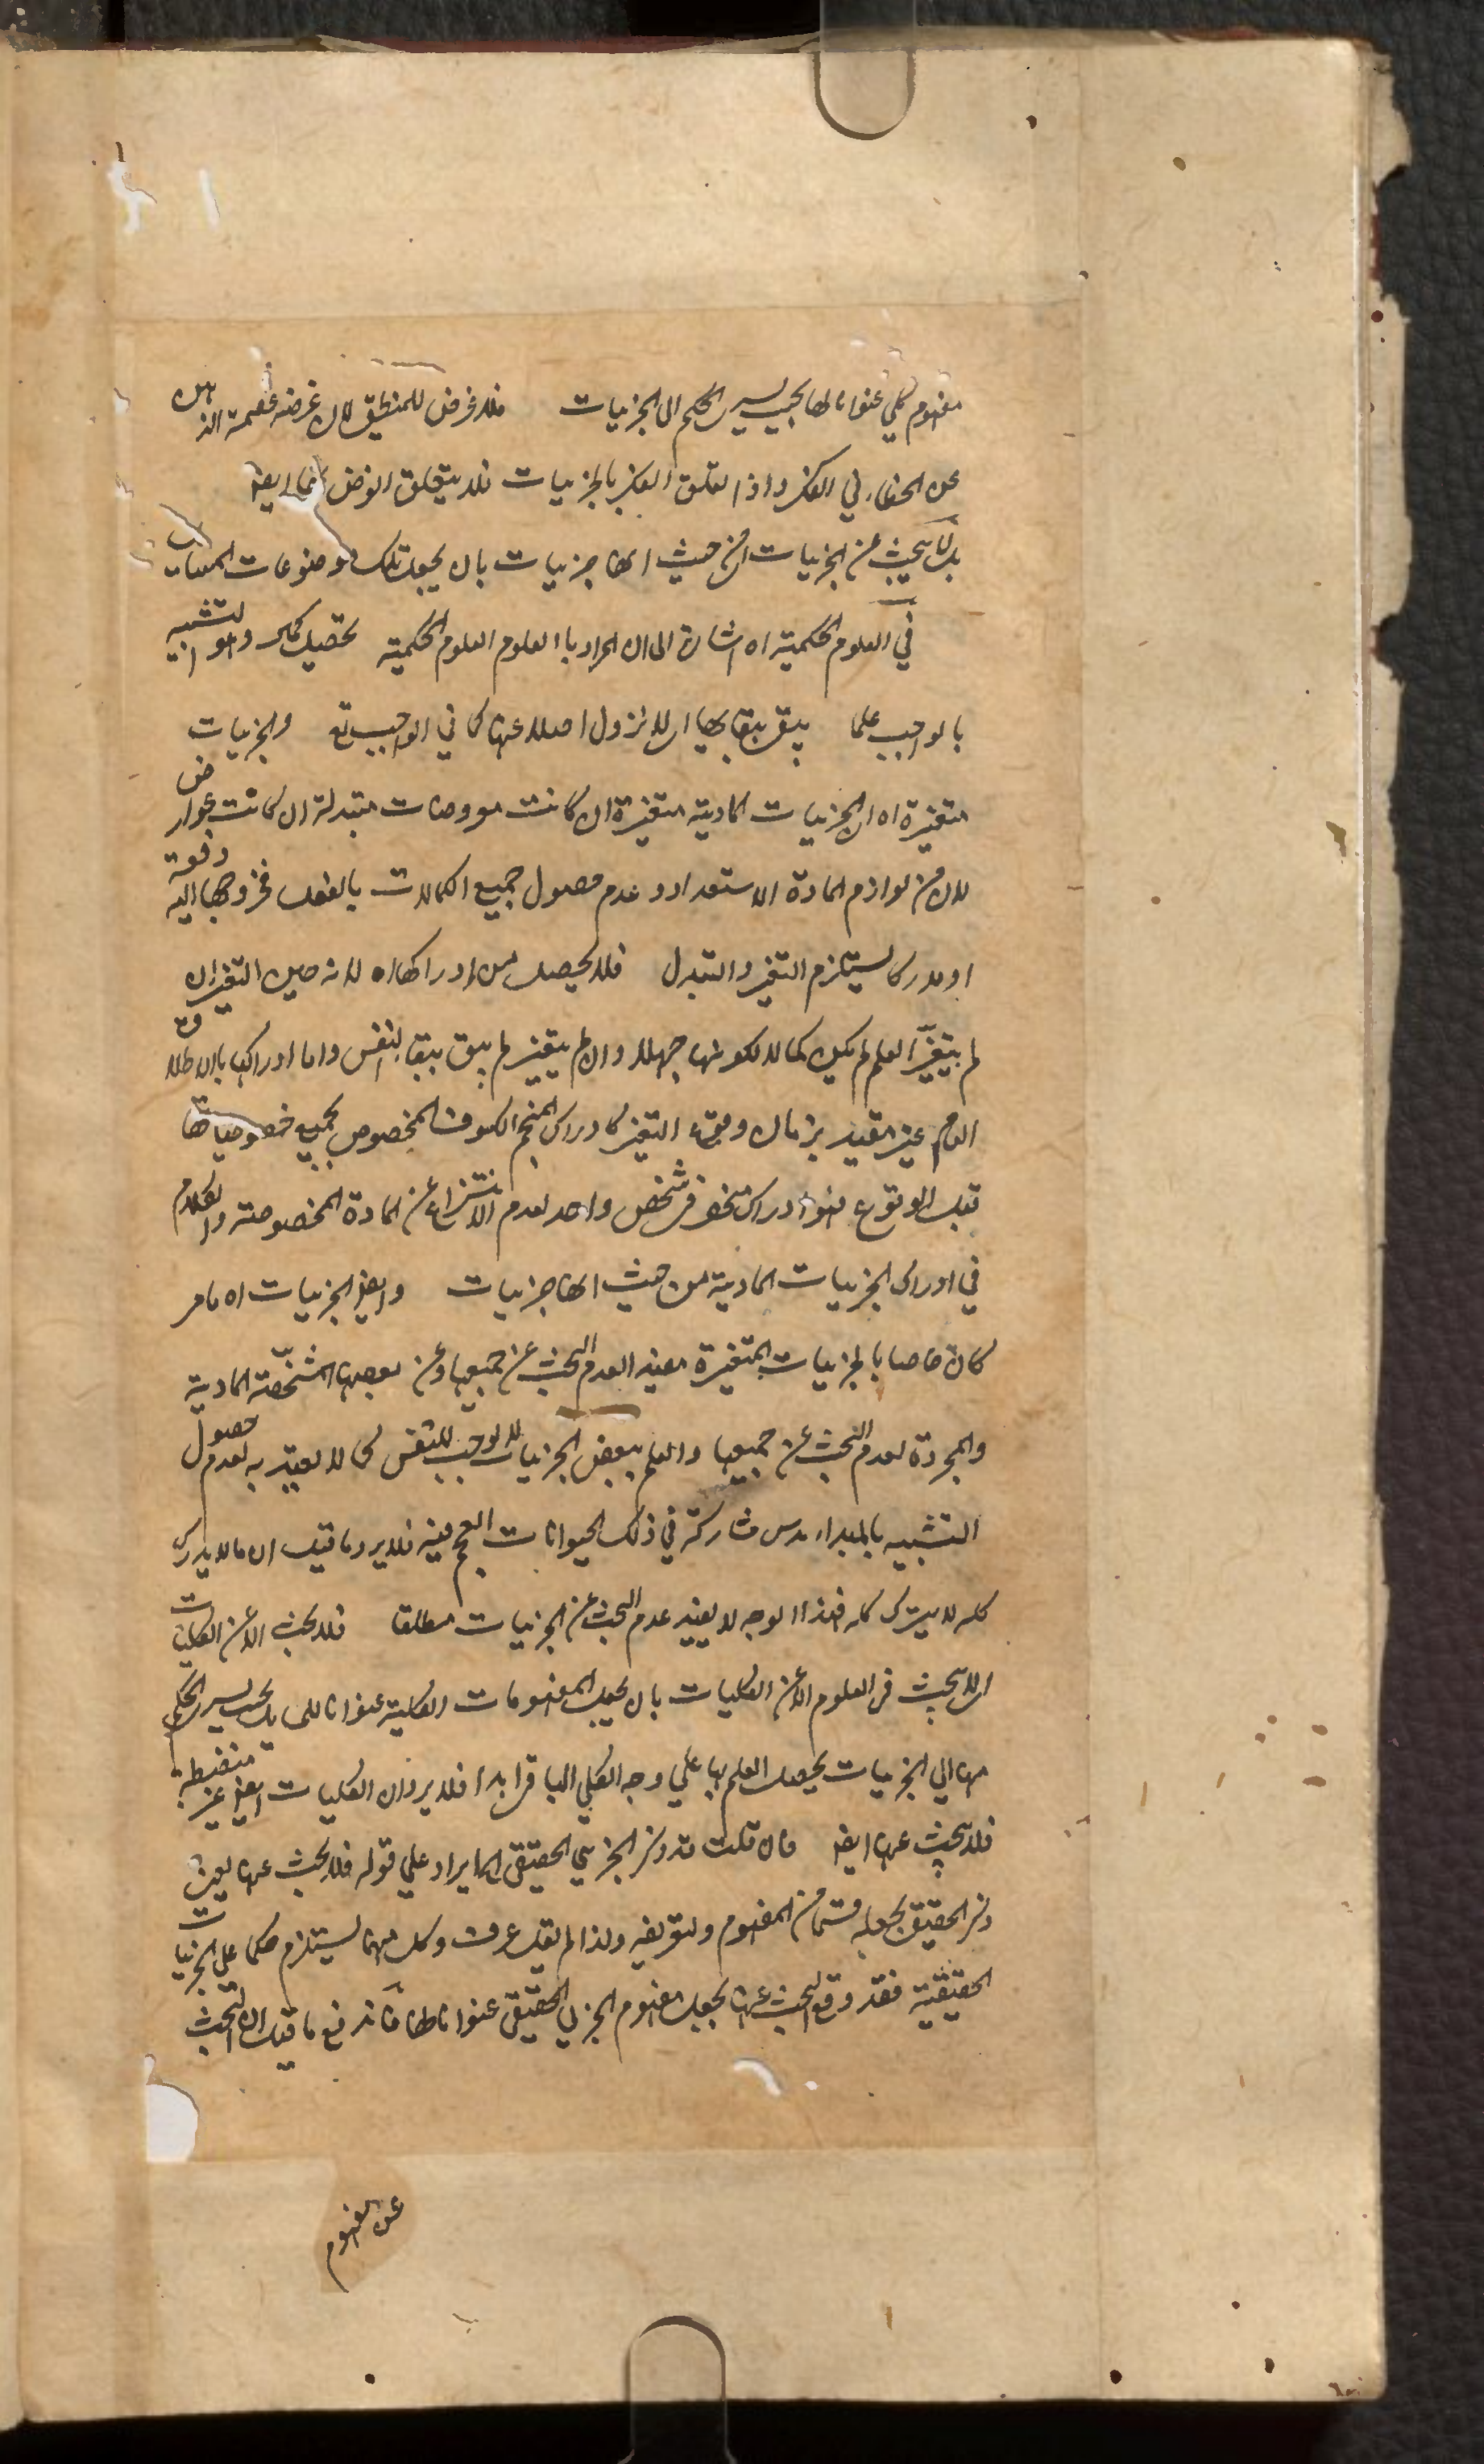 مفهوم كلي عنوانا لها بحيث يسرى الحكم الى الجزئيات فلا غرض للمنطقي لان غرضه عصمة الذهن
عن الخطاء في الفكر واذا لم يتعلق الفكر بالجزئيات فلا يتعلق الغرض بها ايضا
بل لا يبحث عن الجزئيات اى من حيث انها جزئيات بان يجعل تلك موضوعات المسائل
في العلوم الحكمية اه اشارة الى ان المراد بالعلوم العلوم الحكمية تحصيل كمال وهو التشبيه
بالواجب علما يبقى ببقائها اى لا تزول اصلا عنها كما في الواجب تع والجزئيات
متغيرة اه اى الجزئيات المادية متغيرة ان كانت معروضات متبدلة ان كانت عوارض
لان من لوازم المادة الاستعداد وعدم حصول جميع الكمالات بالفعل فخروجها اليه دفعة
او مدركا يستلزم التغير والتبدل فلا يحصل من ادراكها اه لانه حين التغير ان
لم يتغير العلم لم يكن كمالا لكونها جهلا وان لم يتغير لم يبق ببقاء النفس واما ادراكها بالاطلاق
العام غير مقيد بزمان وقوع التغير كادراك المنجم الكسوف المخصوص بجميع خصوصياتها
قبل الوقوع فهو ادراك منحصر في شخص واحد لعدم الانتزاع عن المادة المخصوصة والكلام
في ادراك الجزئيات المادية من حيث انها جزئيات وايضا الجزئيات اه ما مر
كان خاصا بالجزئيات المتغيرة مفيد العدم البحث عن جميعها وعن بعضها المشخصة المادية
والمجردة لعدم البحث عن جميعها والعلم ببعض الجزئيات لا يوجب للنفس كمالا يعتد به لعدم حصول
التشبيه بالمبداء من مشاركة في ذلك الحيوانات العجم فيه فلا يرد ما قيل ان ما لا يدرك
كله لا يترك كله فهذا الوجه لا يفيد عدم البحث عن الجزئيات مطلقا فلا بحث الا عن الكليات
اى لا بحث في العلوم الا عن الكليات بان يجعل المفهومات الكلية عنوانا للمسائل بحيث يسرى الحكم
منها الى الجزئيات يحصل العلم بها على وجه الكلي الباقي ابدا فلا يرد ان الكليات ايضا غير منضبطة
فلا يبحث عنها ايضا فان قلت قد ذكر الجزئي الحقيقي اه ايراد على قوله فلا بحث عنها يعني
ذكر الحقيقي بجعله قسما من المفهوم ولتعريفه ولذا لم يقل عرف وكل منهما يستلزم حكما على الجزئيات
الحقيقية فقد وقع البحث عنها بجعل مفهوم الجزئي الحقيقي عنوانا لها فاندفع ما قيل ان البحث
عن المفهوم